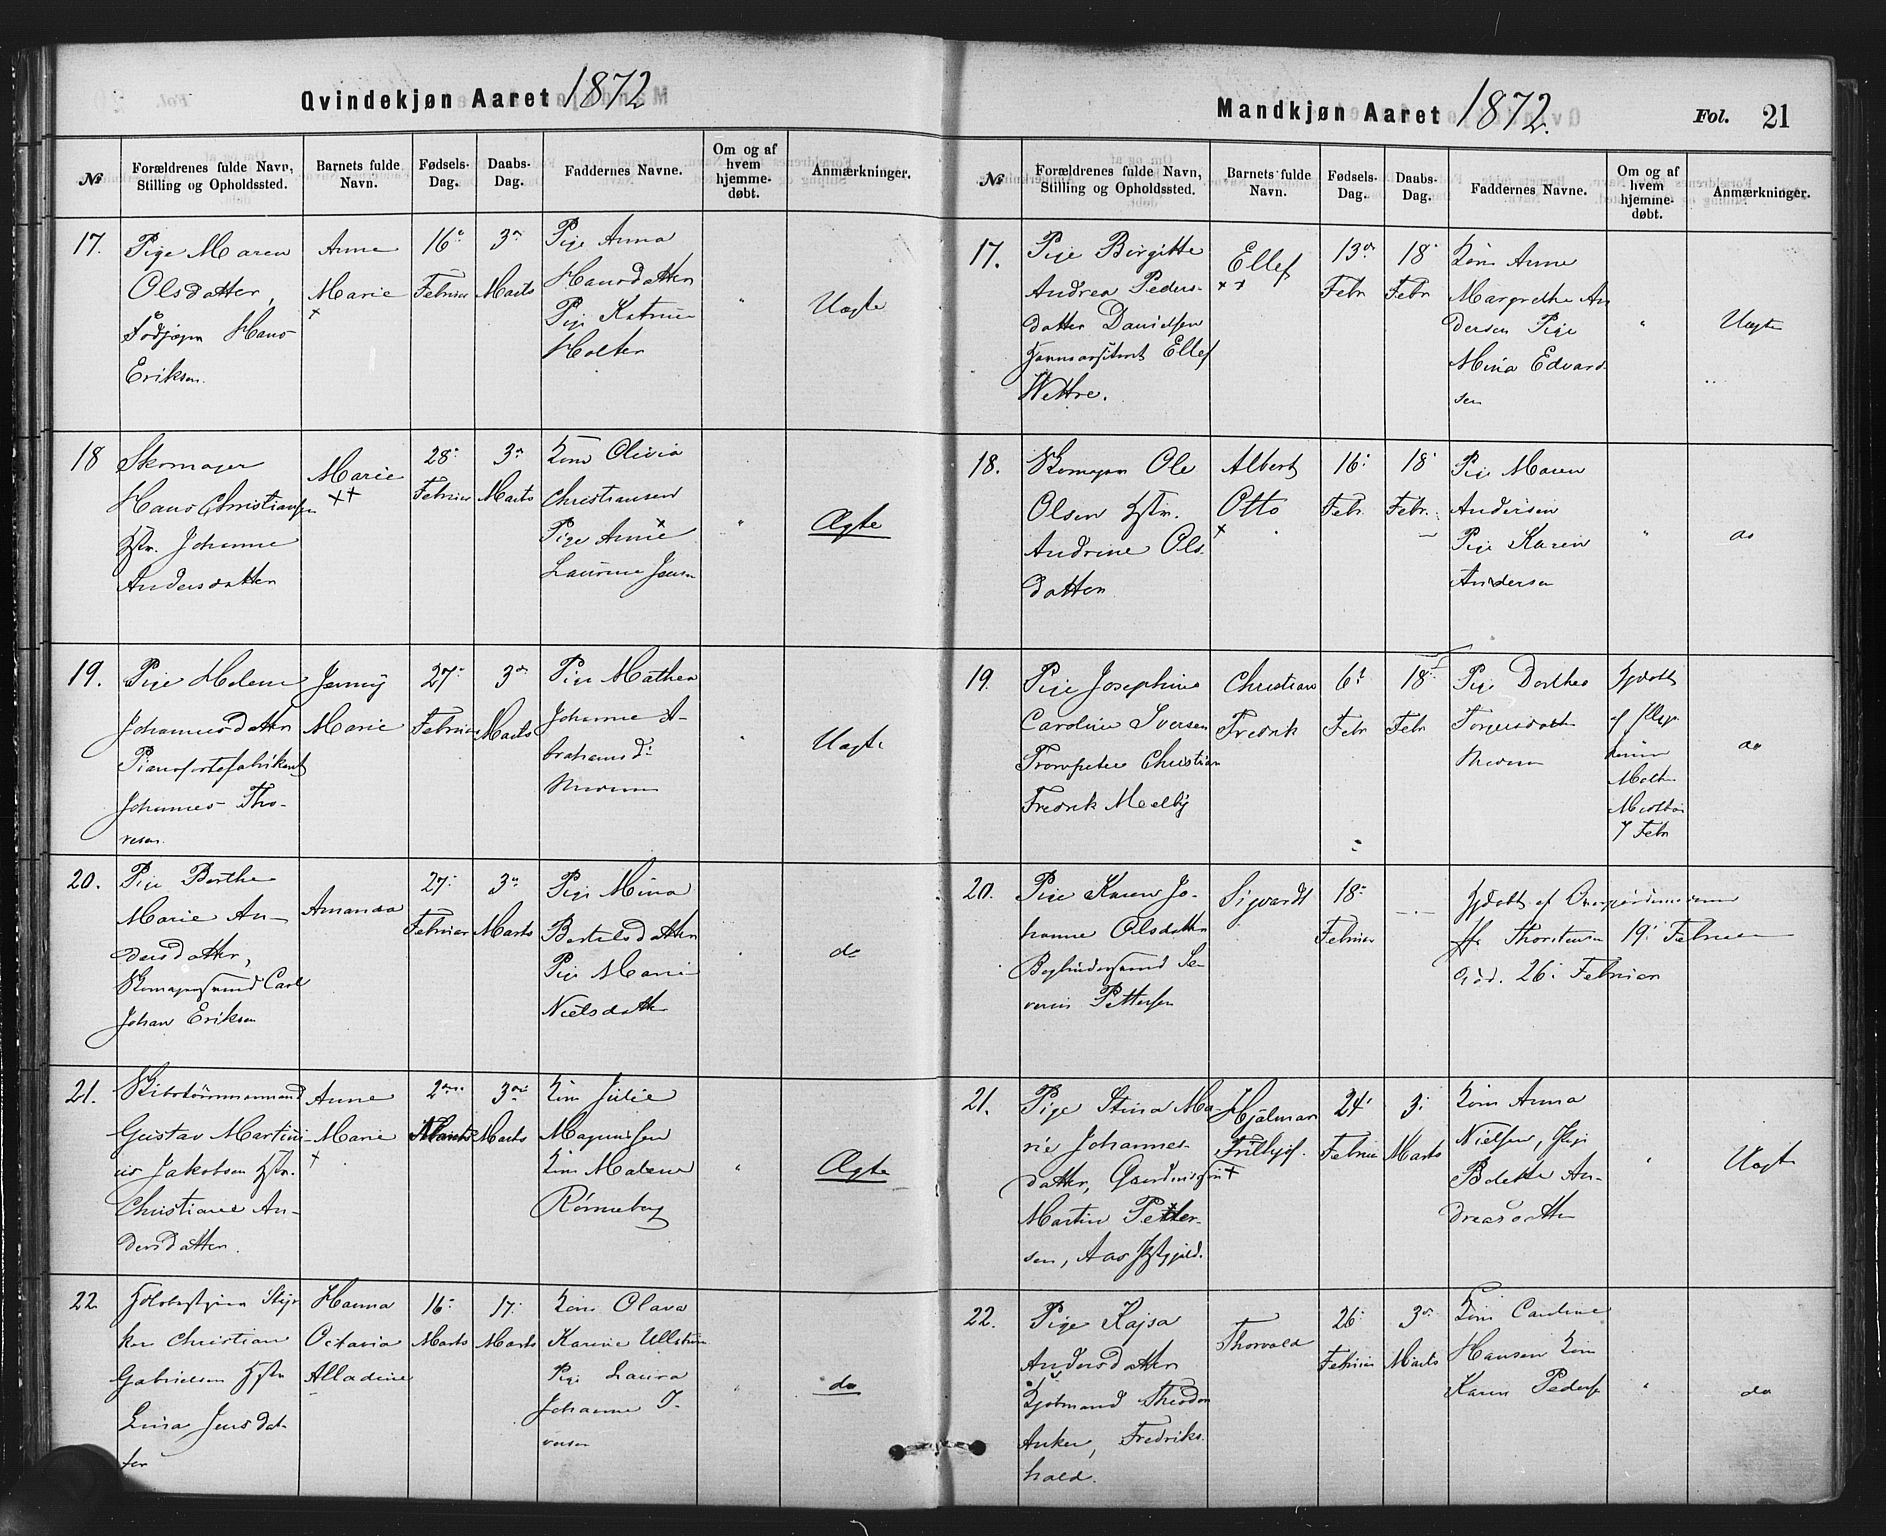 Qvindekjøn Aaret 1872
№
Forældrenes fulde Navn, Stilling og Opholdssted.
Barnets fulde Navn.
Fødsels-Dag.
Daabs-Dag.
Faddernes Navne.
Om og af hvem hjemme-døbt.
Anmærkninger.
17.
Pige Maren
Olsdatter,
Hans
Eriksen.
Anne
Marie
×
16de
Februar
3die
Marts
Pige Anna
Hansdatter
Pige Katrine
Holter
"
Uægte
18
Skomager
Hans Christiansen
Hstr. Johanne
Andersdatter
Marie
××
28de
Februar
3die
Marts
Kone Olivia
Christiansen
Pige Anne
Laurine Jensen
"
Ægte
19.
Pige Helene
Johannesdatter
Pianofortefabrikant
Johannes Tho-
resen.
Jenny
Marie
27de
Februar
3die
Marts
Pige Mathea
Johanne A-
brahamsd:
Moderen
"
Uægte
20.
Pige Berthe
Marie An-
dersdatter,
Skomagersvend Carl
Johan Eriksen
Amanda
27de
Februar
3die
Marts
Pige Mina
Bertelsdatter
Pige Marie
Nielsdatter
do
21.
Skibstømmermand
Gustav Martini-
us Jakobsen Hstr.
Christiane An-
dersdatter.
Anne
Marie
×
2den
Marts
3die
Marts
Kone Julie
Magnussen
Kone Malene
Rønneberg
"
Ægte
22.
Styr-
Christian
Gabrielsen Hstr
Lina Jensdat-
ter
Hanna
Octavia
Alladine
16de
Marts
17de
Marts
Kone Olava
Karine
Pige Laura
Johanne I-
versen
"
do
Mandkjøn Aaret 1872.
Fol. 21
№
Forældrenes fulde Navn, Stilling og Opholdssted.
Barnets fulde Navn.
Fødsels-Dag.
Daabs-Dag.
Faddernes Navne.
Om og af hvem hjemme-døbt.
Anmærkninger.
17.
Pige Birgitte
Andrea Peders-
datter Danielsen
Ellef
Wettre.
Ellef
××
13de
Febr
18
Febr
Kone Anne
Margrethe An
dersen Pige
Mina Edvard
sen
"
Uægte
18.
Skomager Ole
Olsen Hstr.
Andrine Ols.
datter
Albert
Otto
×
16de
Febr
18
Febr.
Pige Maren
Andersen
Pige Karen
Andersen
"
do
19.
Pige Josephine
Caroline Iversen
Trompeter Christian
Fredrik Melby
Christian
Fredrik
6te
Febr
18
Febr
Pige Dorthea
Torgersdatt
Moderen
Hjdøbt
af
7 Febr
do
20.
Pige Karen Jo-
hanne Olsdatter
Bogbindersvend Se-
verin Pettersen
Sigvardt
18de
Februar
Hjdøbt af
Thorstensen 19de Februar
død. 26de Februar
21.
Pige Stina Ma-
rie Johannes-
datter,
Martin Petter-
sen, Aas Prstgjeld.
Hjalmar
Frithjof.
×
24
Februar
3
Marts
Kone Anna
Nielsen, Pige
Bolette An-
dreasdatter
"
Uægte
22.
Pige Kajsa
Andersdatter
Kjøbmand Theodor
Anker, Fredriks-
hald.
Thorvald
26
Februar
3die
Marts
Kone Caroline
Hansen Kone
Karen Pedersen
"
do